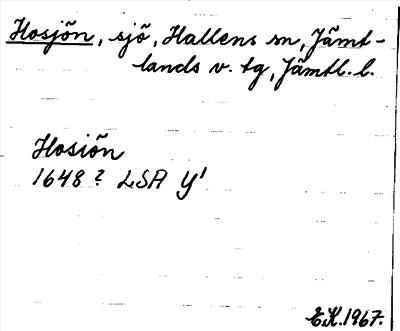 Hosjön, sjö, Hallens sn, Jämt-
lands v. tg, Jämtl. l.
Hosiön
1648? LSA Y'
E.K. 1967.